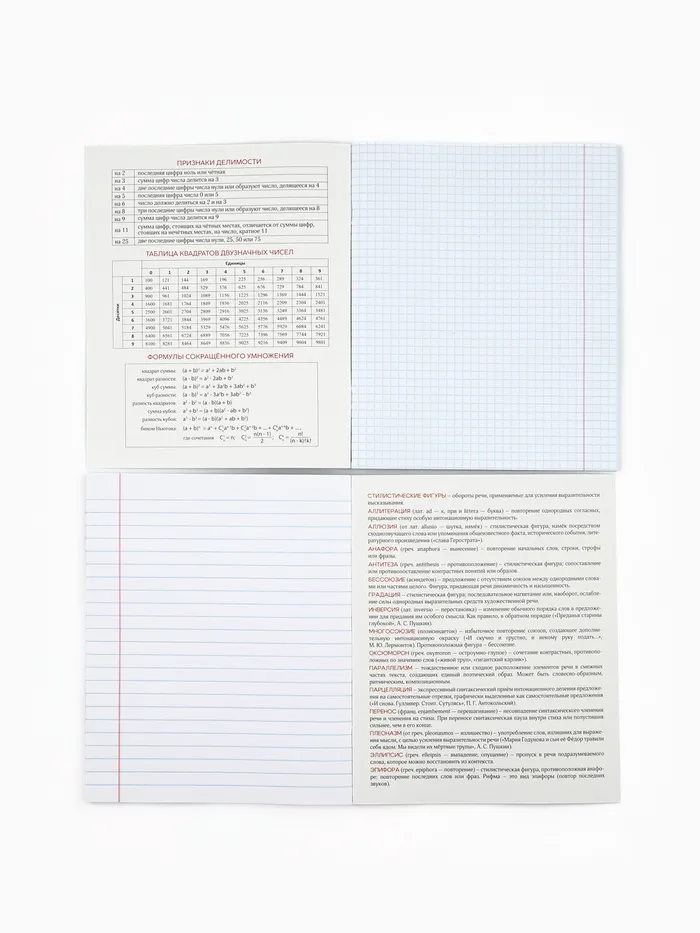 ПРИЗНАКИ ДЕЛИМОСТИ
на 2 последняя цифра ноль или чётная
на 3 сумма цифр числа делится на 3
на 4 две последние цифры числа нули или образуют число, делящееся на 4
на 5 последняя цифра числа 0 или 5
на 6 число должно делиться на 2 и на 3
на 8 три последние цифры числа нули или образуют число, делящееся на 8
на 9 сумма цифр числа делится на 9
на 11 сумма цифр, стоящих на чётных местах, отличается от суммы цифр,
стоящих на нечётных местах, на число, кратное 11
на 25 две последние цифры числа нули, 25, 50 или 75
ТАБЛИЦА КВАДРАТОВ ДВУЗНАЧНЫХ ЧИСЕЛ
Единицы
Десятки
0 1 2 3 4 5 6 7 8 9
1 100 121 144 169 196 225 256 289 324 361
2 400 441 484 529 576 625 676 729 784 841
3 900 961 1024 1089 1156 1225 1296 1369 1444 1521
4 1600 1681 1764 1849 1936 2025 2116 2209 2304 2401
5 2500 2601 2704 2809 2916 3025 3136 3249 3364 3481
6 3600 3721 3844 3969 4096 4225 4356 4489 4624 4761
7 4900 5041 5184 5329 5476 5625 5776 5929 6084 6241
8 6400 6561 6724 6889 7056 7225 7396 7569 7744 7921
9 8100 8281 8464 8649 8836 9025 9216 9409 9604 9801
ФОРМУЛЫ СОКРАЩЁННОГО УМНОЖЕНИЯ
квадрат суммы: (a + b)² = a² + 2ab + b²
квадрат разности: (a - b)² = a² - 2ab + b²
куб суммы: (a + b)³ = a³ + 3a²b + 3ab² + b³
куб разности: (a - b)³ = a³ - 3a²b + 3ab² - b³
разность квадратов: a² - b² = (a - b)(a + b)
сумма кубов: a³ + b³ = (a + b)(a² - ab + b²)
разность кубов: a³ - b³ = (a - b)(a² + ab + b²)
бином Ньютона: (a + b)ⁿ = aⁿ +
где сочетания
СТИЛИСТИЧЕСКИЕ ФИГУРЫ – обороты речи, применяемые для усиления выразительности
высказывания.
АЛЛИТЕРАЦИЯ (лат. ad — к, при и littera — буква) – повторение однородных согласных,
придающее стиху особую интонационную выразительность.
АЛЛЮЗИЯ (от лат. allusio — шутка, намёк) – стилистическая фигура, намёк посредством
сходнозвучащего слова или упоминания общеизвестного факта, исторического события, лите-
ратурного произведения («слава Герострата»).
АНАФОРА (греч. anaphora — вынесение) – повторение начальных слов, строки, строфы
или фразы.
АНТИТЕЗА (греч. antithesis — противоположение) – стилистическая фигура; сопоставление
или противопоставление контрастных понятий или образов.
БЕССОЮЗИЕ (асиндетон) – предложение с отсутствием союзов между однородными слова-
ми или частями целого. Фигура, придающая речи динамичность и насыщенность.
ГРАДАЦИЯ – стилистическая фигура; последовательное нагнетание или, наоборот, ослабле-
ние силы однородных выразительных средств художественной речи.
ИНВЕРСИЯ (лат. inversio — перестановка) – изменение обычного порядка слов в предложе-
нии для придания им особого смысла. Как правило, в обратном порядке («Преданья старины
глубокой», А. С. Пушкин).
МНОГОСОЮЗИЕ (полисиндетон) – избыточное повторение союзов, создающее дополни-
тельную интонационную окраску («И скучно и грустно, и некому руку подать...»,
М. Ю. Лермонтов). Противоположная фигура – бессоюзие.
ОКСЮМОРОН (греч. oxymoron — остроумно-глупое) – сочетание контрастных, противопо-
ложных по значению слов («живой труп», «гигантский карлик»).
ПАРАЛЛЕЛИЗМ – тождественное или сходное расположение элементов речи в смежных
частях текста, создающих единый поэтический образ. Может быть словесно-образным,
ритмическим, композиционным.
ПАРЦЕЛЛЯЦИЯ – экспрессивный синтаксический приём интонационного деления предложе-
ния на самостоятельные отрезки, графически выделенные как самостоятельные предложения
(«И снова. Гулливер. Стоит. Сутулясь», П. Г. Антокольский).
ПЕРЕНОС (франц. enjambement — перешагивание) – несовпадение синтаксического членения
речи и членения на стихи. При переносе синтаксическая пауза внутри стиха или полустишия
сильнее, чем в его конце.
ПЛЕОНАЗМ (от греч. pleonasmos — излишество) – употребление слов, излишних для выраже-
ния мысли, с целью усиления выразительности речи («Мария Годунова и сын её Фёдор травили
себя ядом. Мы видели их мёртвые трупы», А. С. Пушкин).
ЭЛЛИПСИС (греч. elleipsis — выпадение, опущение) – пропуск в речи подразумеваемого
слова, которое можно восстановить из контекста.
ЭПИФОРА (греч. epiphora — повторение) – стилистическая фигура, противоположная анафо-
ре: повторение последних слов или фраз. Рифма – это вид эпифоры (повтор последних
звуков).